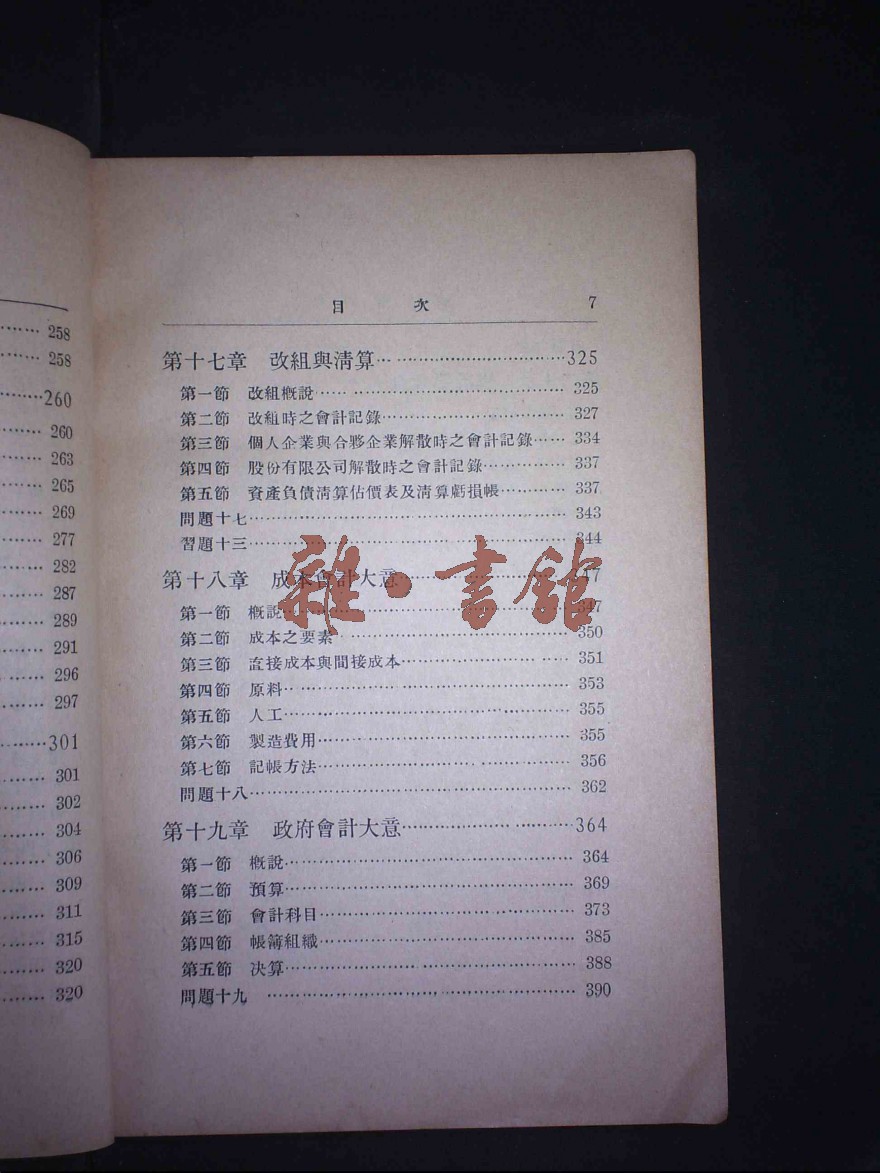 258
258
260
260
263
265
269
277
282
287
289
291
296
297
301
301
302
304
306
309
311
315
320
320
目 次 7
第十七章 改組與清算 325
第一節 改組概說 325
第二節 改組時之會計記錄 327
第三節 個人企業與合夥企業解散時之會計記錄 334
第四節 股份有限公司解散時之會計記錄 337
第五節 資產負債清算估價表及清算虧損帳 337
問題十七 343
習題十三 344
第十八章 成本會計大意 347
第一節 概說 347
第二節 成本之要素 350
第三節 直接成本與間接成本 351
第四節 原料 353
第五節 人工 355
第六節 製造費用 355
第七節 記帳方法 356
問題十八 362
第十九章 政府會計大意 364
第一節 概說 364
第二節 預算 369
第三節 會計科目 373
第四節 帳簿組織 385
第五節 決算 388
問題十九 390
雜·書館